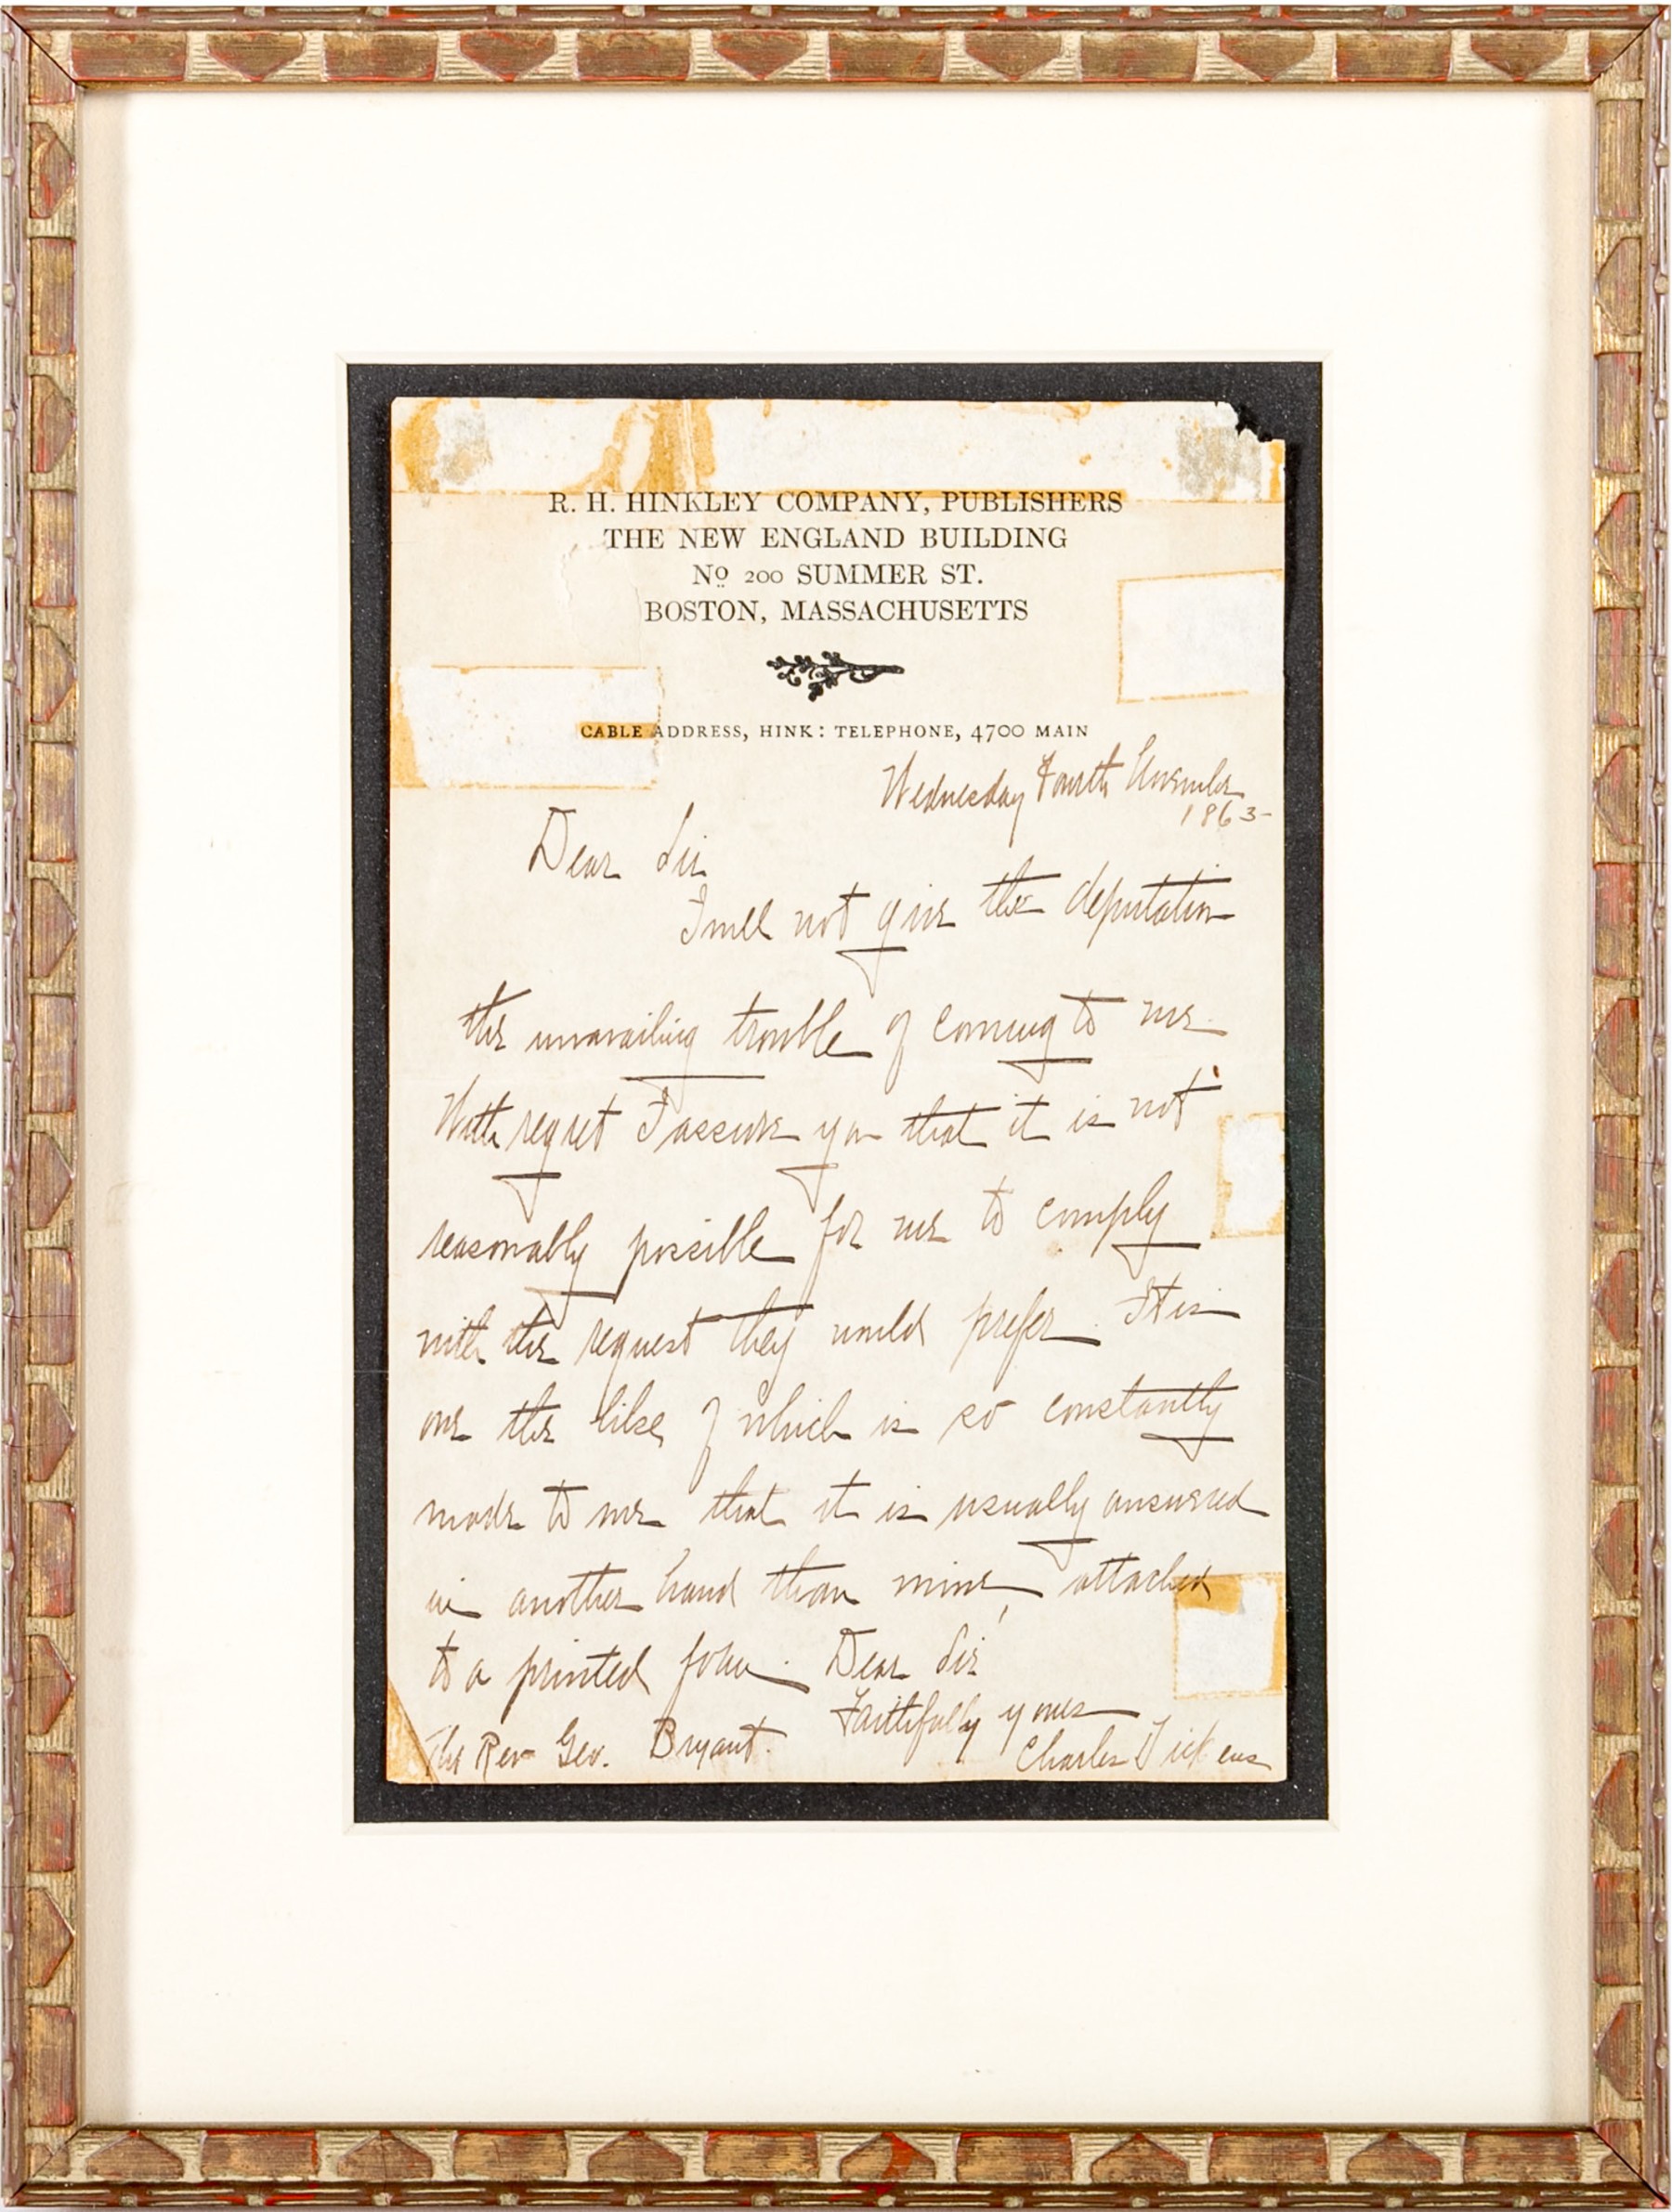 R. H. HINKLEY COMPANY, PUBLISHERS
THE NEW ENGLAND BUILDING
Nº 200 SUMMER ST.
BOSTON, MASSACHUSETTS
CABLE ADDRESS, HINK: TELEPHONE, 4700 MAIN
Wednesday Fourth November
1863-
Dear Sir
I will not give the deputation
the unavailing trouble of coming to me.
With regret I assure you that it is not
reasonably possible for me to comply
with the request they would prefer. It is
one the like of which is so constantly
made to me that it is usually answered
in another hand than mine, attached
to a printed form. Dear Sir
Faithfully yours
The Rev Geo. Bryant. Charles Dickens